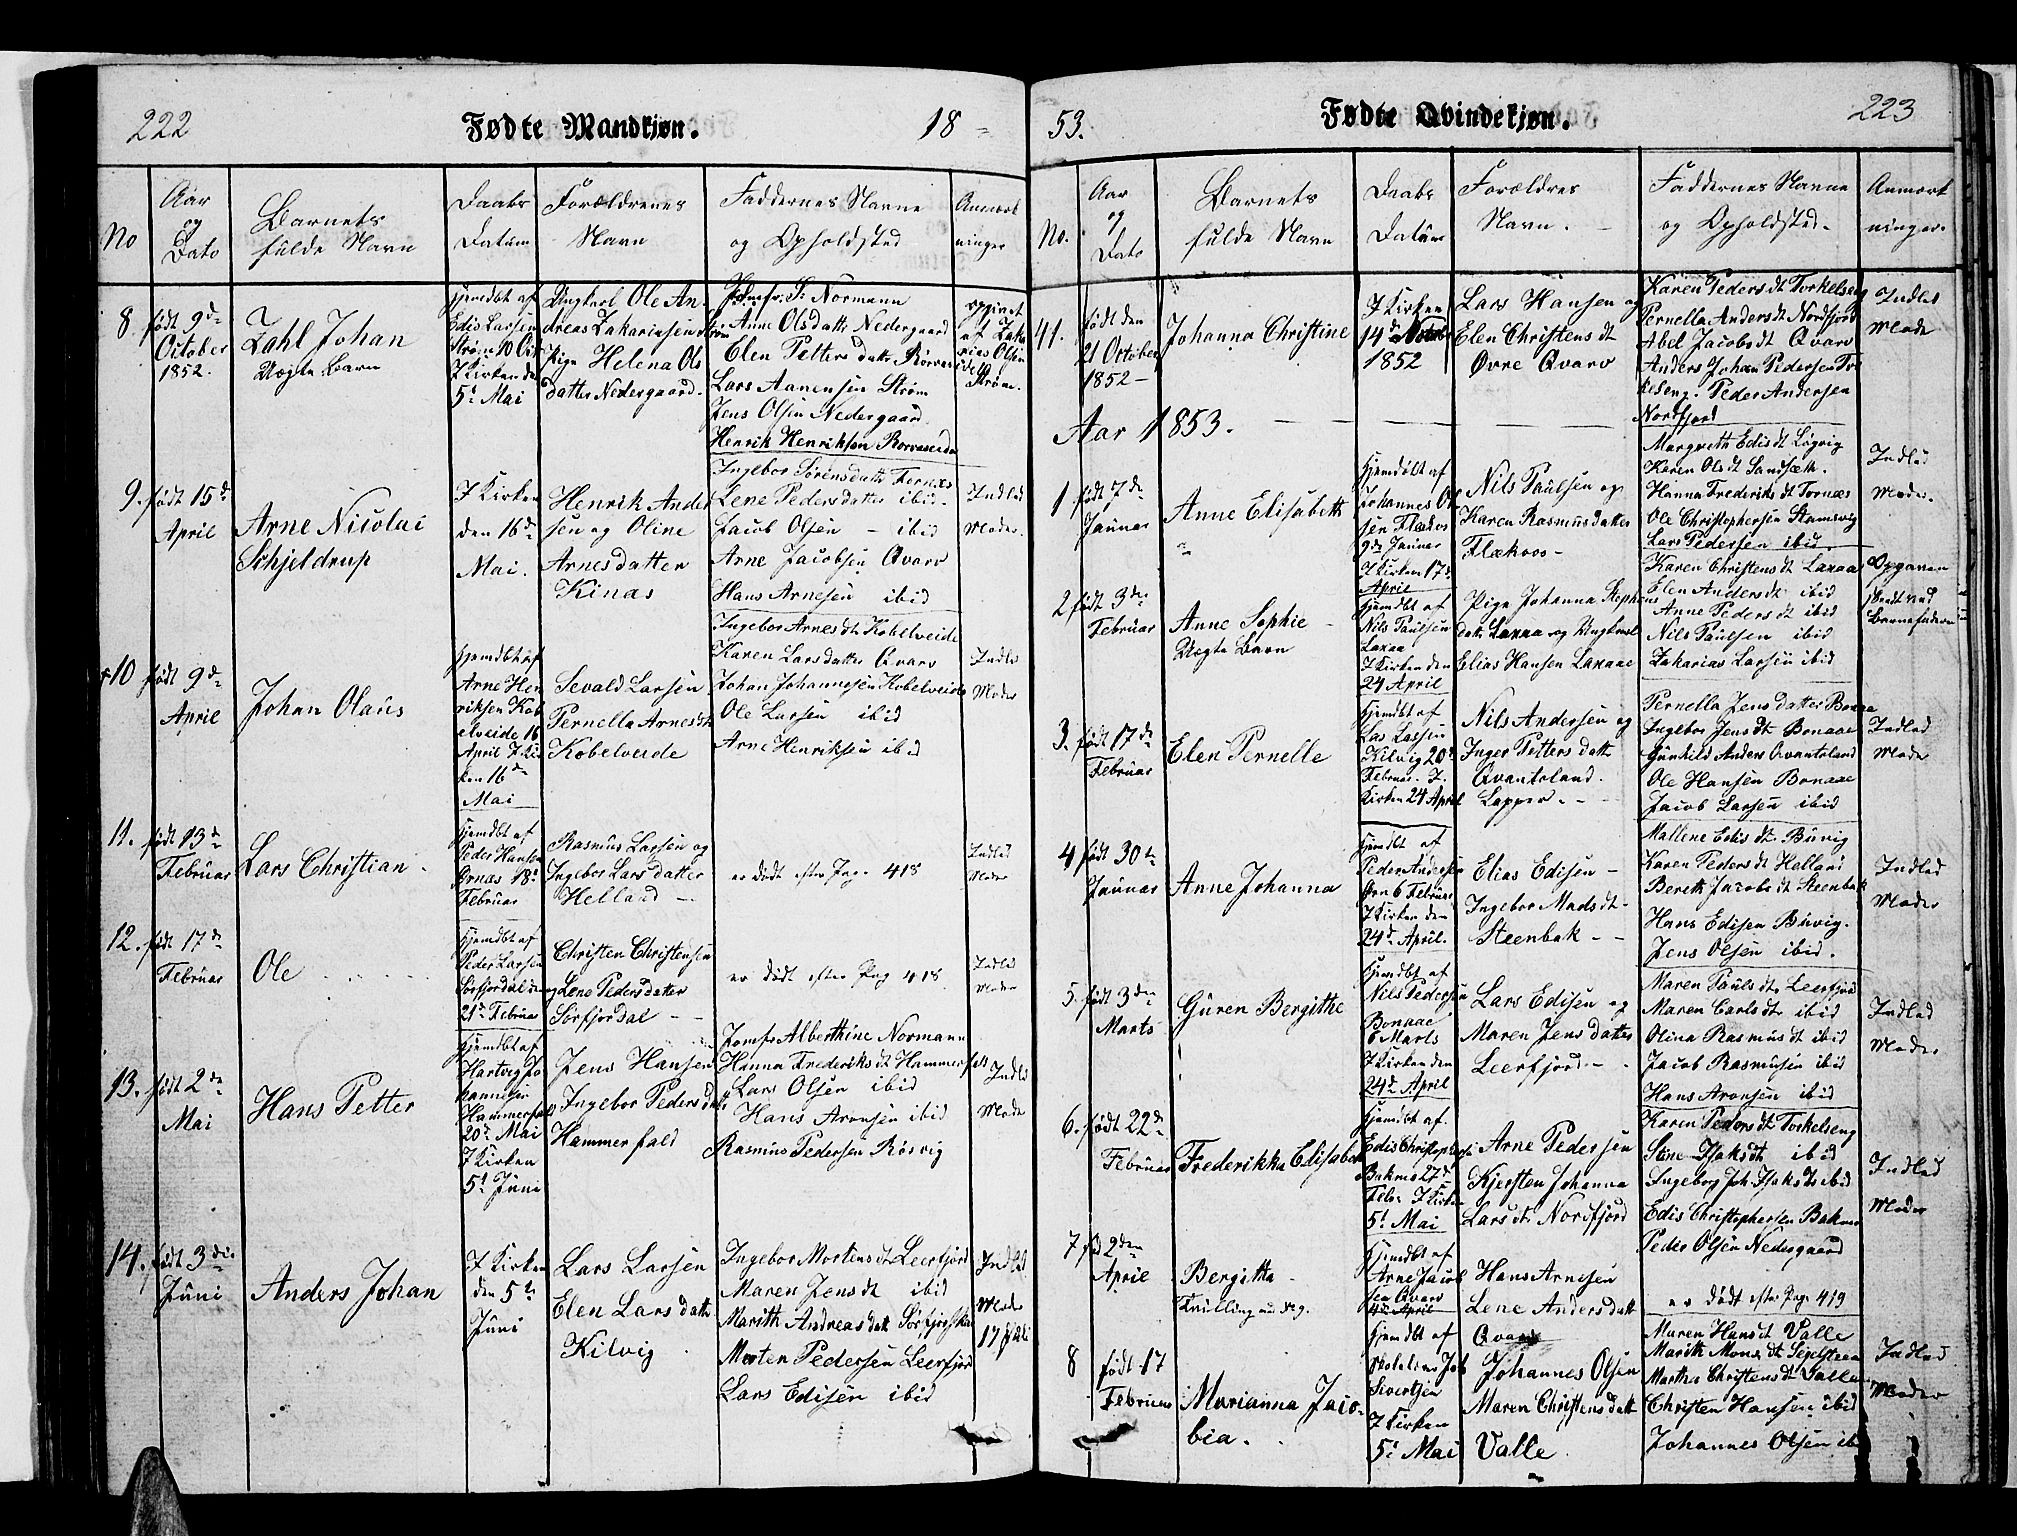 222
Fødte Mandkjøn.
18
No
Aar
og
Dato
Barnets
fulde Navn
Daabs
Datum
Forældrenes
Navn
Faddernes Navne
og Opholdsted
Anmærk
ninger
8
født 9de
October
1852.
Zahl Johan
Uægte Barn
Hjemdbt af
Edis Larsen
Strøm 10 Oct
I Kirken den
5t Mai
Ungkarl Ole An-
dreas Zakariasen Strøm
Pige Helena Ols
datter Nedergaard.
Jomfr. S. Normann
Anne Olsdattr Nedergaard
Elen Petters datter
Lars Aanensen Strøm
Jens Olsen Nedergaard
Henrik Henriksen
opgivet
af Zaka
rias Olsen
Strøm.
9.
født 15de
April
Arne Nicolai
Schjeldrup
I Kirken
den 16de
Mai.
Henrik Ander
sen og Oline
Arnesdatter
Kinas
Ingebor Sørensdattr Tornæs
Lene Pedersdatter ibid
Jacob Olsen - ibid
Arne Jacobsen Qvarv
Hans Arnesen ibid
Indled
Moder.
10
født 9de
April
Johan Olaus
Hjemdbt af
Arne Hen
riksen Kob
elveide 16
April I Kir
ken 16de
Mai
Sevald Larsen
Pernella Arnesdt
Kobelveide
Ingebor Arnesdt Kobelveide
Karen Larsdatter Qvarv
Johan Johannesen Kobelveide
Ole Larsen ibid
Arne Henriksen ibid
Indled
Moder
11.
født 13de
Februar
Lars Christian
Hjemdbt af
Peder Hansen
Ørnæs 18de
Februar
Rasmus Larsen og
Ingebor Lars datter
Helland
er død efter Pag. 418
Indled
Moder
12.
født 17de
Februar
Ole
Hjemdbt af
Peder Larsen
Sørfjordal den
21de Februar
Christen Christensen
og Lene Pedersdatter
Sørfjordal
er død efter Pag 418.
Indled
Moder
13.
født 2den
Mai
Hans Petter
Hjemdbt af
Hartvig Jo
hannesen
Hammerfald
20de Mai
I Kirken
5t Juni
Jens Hansen
Ingebor Peders dt
Hammerfald
Jomfr Alberthine Normann
Hanna Frederiksdt Hammerfald
Lars Olsen ibid
Hans Aronsen ibid
Rasmus Pedersen Røsvig
Indled
Moder
14.
født 3die
Juni
Anders Johan
I Kirken
den 5te
Juni
Lars Larsen
Elen Lars datter
Kilvig
Ingebor Mortensdt Leerfjord
Maren Jensdt ibid
Marith Andreas datt
Morten Pedersen Leerfjord
Lars Edisen ibid
Indled
Moder
17 Juli
53.
Fødte Qvindekjøn.
223
No.
Aar
og
Dato
Barnets
fulde Navn
Daabs
Datum
Forældres
Navn.
Faddernes Navne
og Opholdsted.
Anmærk
ninger.
41.
født den
21 October
1852
Johanna Christine
I Kirken
14de
1852
Lars Hansen og
Elen Christensdt
Øvre Qvarv
Karen Pedersdt Torkelseng
Pernella Andersdt Nordfjord
Abel Jacobsdt Qvarv
Anders Johan Pedersen Tor
kelseng. Peder Andersen
Nordfjord
Indled
Moder
Aar 1853.
1
født 7de
Januar
Anne Elisabeth
Hjemdøbt af
Johannes Ol
sen Flækos
9de Januar
I Kirken 17de
April
Nils Paulsen og
Karen Rasmusdatter
Flækos
Margreth Edisdt Løgvig
Karen Olsdt Sandsæth.
Hanna Frederiksdt Tornæs
Ole Christophersen Stamsvig
Lars Pedersen ibid.
Indled
Moder.
2
født 3die
Februar
Anne Sophie
Uægte Barn
Hjemdbt af
Nils Paulsen
Laxaa
I Kirken den
24 April
Pige Johanna Stephens
datt. Laxaa og Ungkarl
Elias Hansen Laxaa
Karen Christensdt Laxaa
Elen Andersdt ibid
Anne Pedersdt ibid
Nils Paulsen ibid
Zakarias Larsen ibid
3.
født 17de
Februar
Elen Pernelle
Hjemdbt af
Las Larsen
Kilvig 20de
Februar. I
Kirken 24 April
Nils Andersen og
Inger Petters datt
Qvantoland.
Lapper.
Pernella Jens datter Bonaae
Ingebor Jensdt Bonaae
Gunhild Anders Qvantoland
Ole Hansen Bonaae
Jacob Larsen ibid
Indled
Moder
4
født 30te
Januar
Anne Johanna
Hjemdbt af
Peder Andersen
6 Februar
I Kirken den
24de April.
Elias Edisen
Ingebor Madsdt
Steenbak
Mallene Edisdt Buvig
Karen Pedersdt Helland
Bereth Jacobsdt Steenbak
Hans Edisen Buvig.
Jens Olsen ibid.
Indled
Moder
5.
født 3den
Marts
Guren Bergithe
Hjemdbt af
Nils Pedersen
Bonaae
6 Marts
I Kirken den
24de April
Lars Edisen og
Maren Jens datter
Leerfjord
Maren Paulsdt Leerfjord
Maren Carlsdt ibid
Olina Rasmusdt ibid
Jacob Rasmusen ibid
Hans Aronsen ibid
Indled
Moder
6.
født 22de
Februar
Frederikka Elisabeth
Hjemdbt af
Edis Christophersen
Baknes 27de
Febr I Kirken
5t Mai
Arne Pedersen
Kjersten Johanna
Larsdt Nordfjord
Karen Pedersdt Torkelseng
Stine Isaksdt ibid
Ingeborg Joh. Isaksdt ibid
Edis Christophersen Baknes
Peder Olsen Nedergaard
Indled
Moder
7
fød 2den
April
Bergitha
Tvilling
Hjemdbt af
Arne Jacob
sen Qvarv
April
Hans Arnesen
Lene Anders datt
Qvarv
er død efter Pag. 419
8
født 17
Februar
Marianna Jaco-
bia.
Hjemdbt af
Skolelærer Job
Sivertsen
I Kirken
5t Mai
Johannes Olsen
Maren Christens datt
Valle
Maren Hansdt Valle
Marith Monsdt Segelsteen
Marthe Christensdt Valle
Christen Hansen ibid
Johannes Olsen ib
Indled
Moder